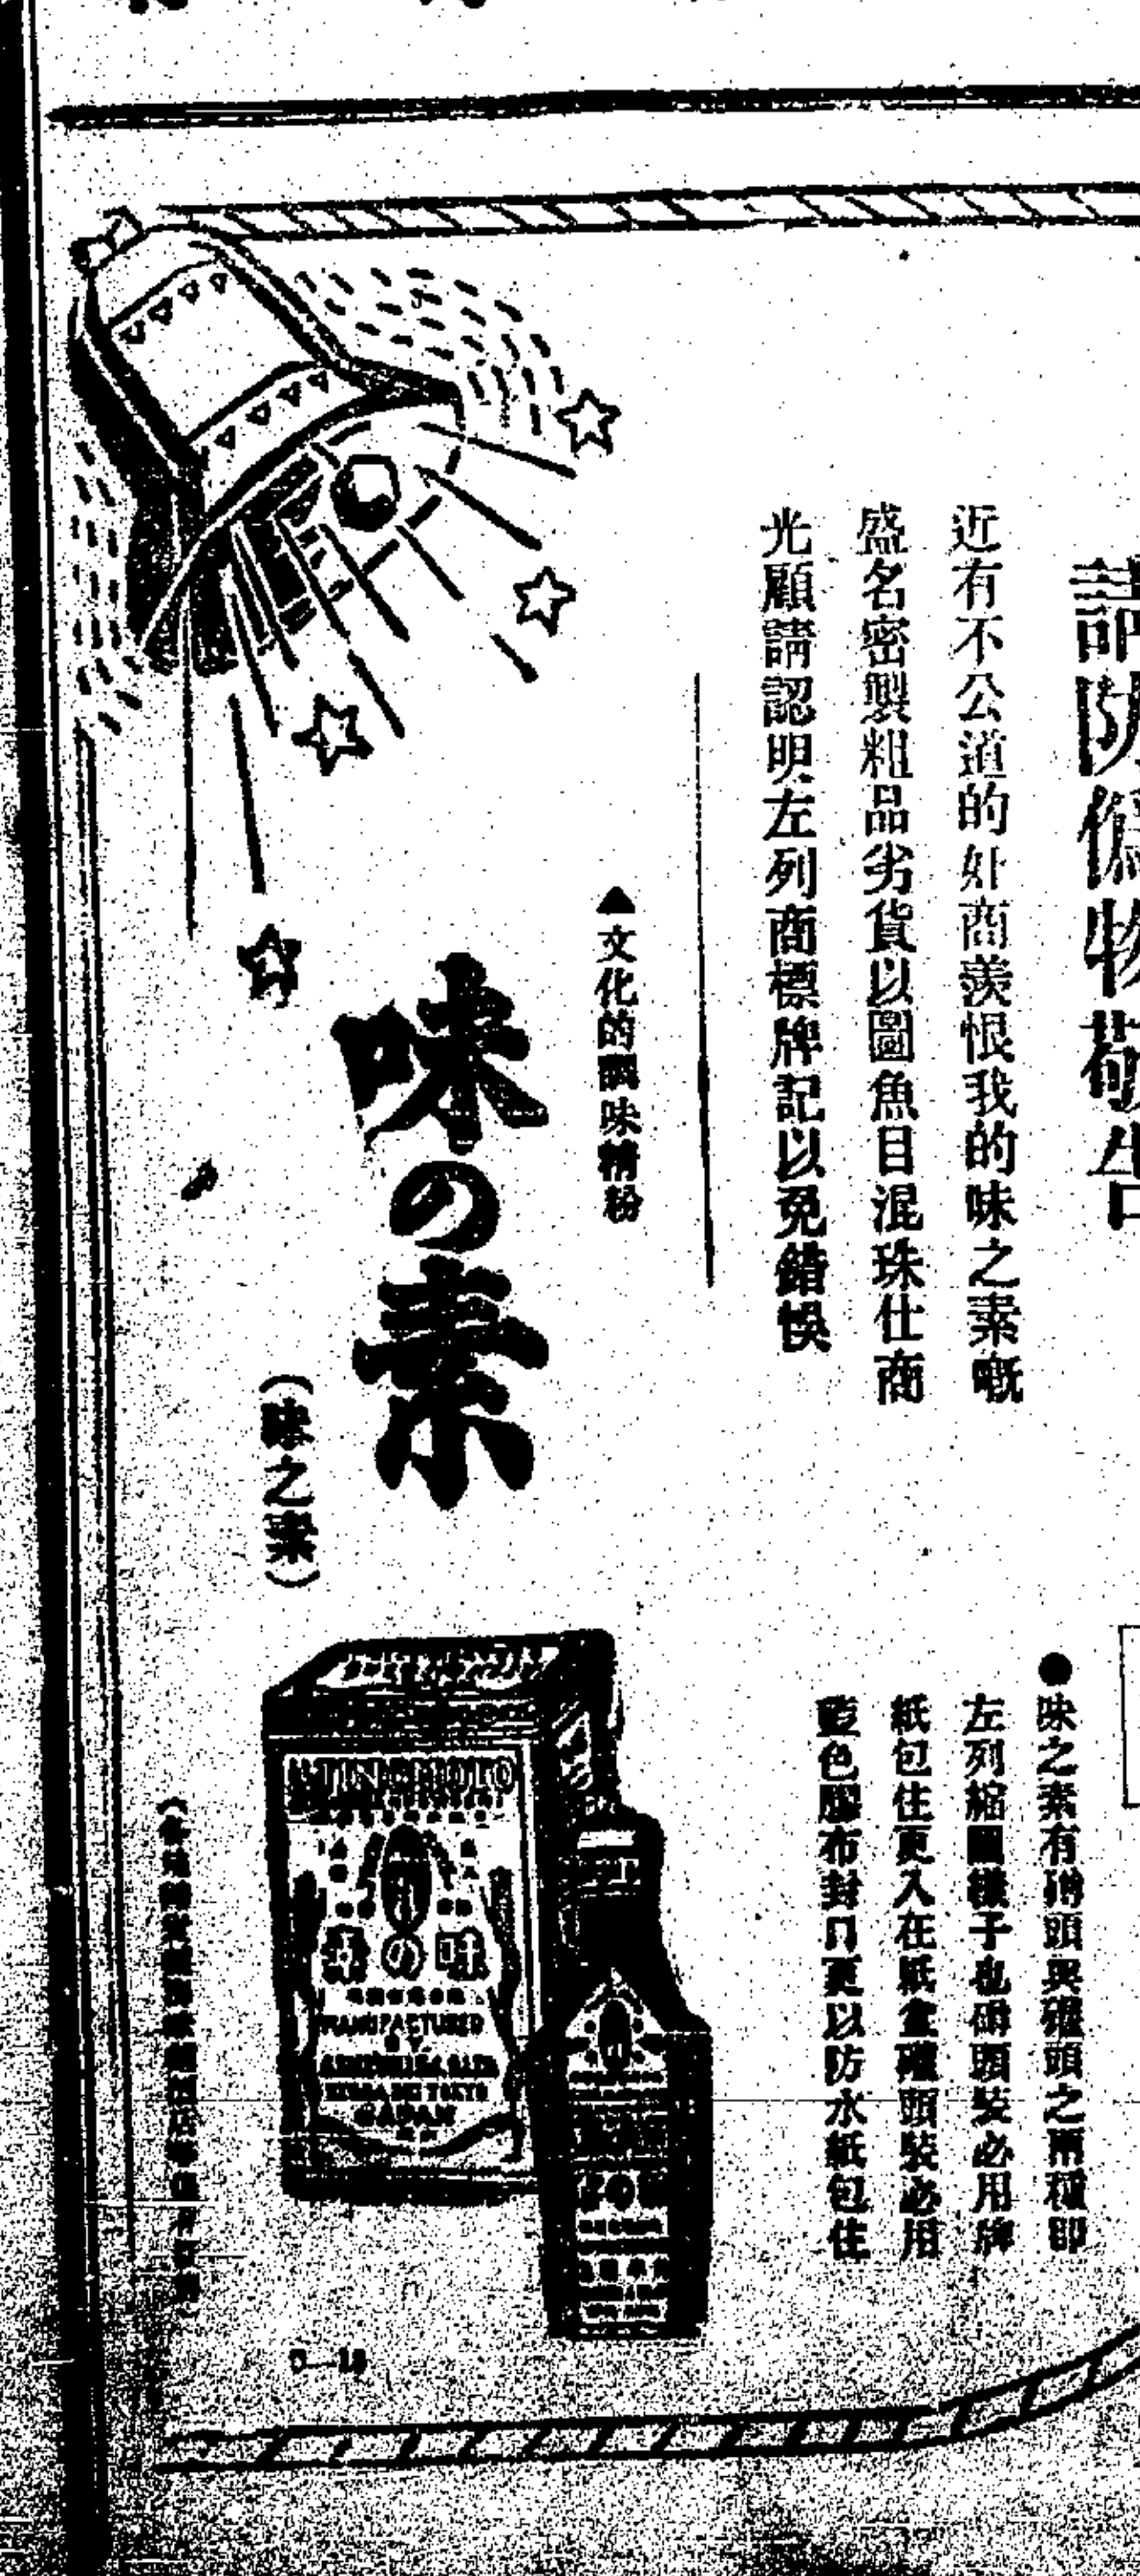 請防偽物敬告
近有不公道的奸商羨恨我的味之素嘅
盛名密製粗品劣貨以圖魚目混珠仕商
光顧請認明左列商標牌記以免錯悞
▲文化的調味精粉
味の素
(味之素)
●味之素有樽頭與礶頭之兩種即
左列縮圖樣子也樽頭裝必用牌
紙包住更入在紙盒礶頭裝必用
藍色膠布封口更以防水紙包住
AJINOMOTO
素の味
MANUFACTURED
BY
TOKYO
JAPAN